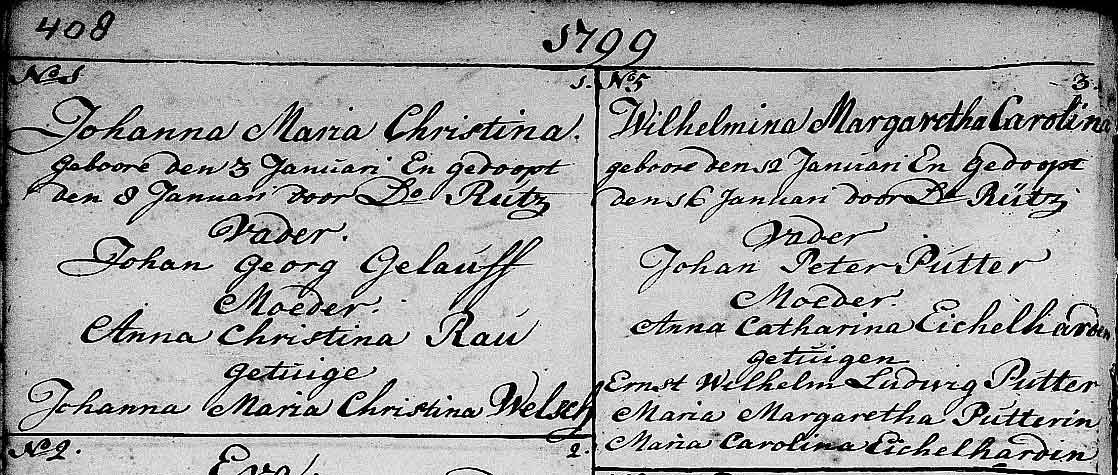 408
1799
No 1 1.
Johanna Maria Christina.
geboore den 3 Januari En gedoopt
den 8 Januari door Do Rütz
Vader.
Johan Georg Gelauff
Moeder.
Anna Christina Rau
getuige
Johanna Maria Christina Welsch
No 2. 2.
Eva
No 5 3.
Wilhelmina Margaretha Carolin
geboore den 12 Januari En gedoopt
den 16 Januari door Do Rütz
Vader
Johan Peter Pütter
Moeder.
Anna Catharina Eichelharden
getuigen
Ernst Wilhelm Ludwig Pütter
Maria Margaretha Pütterin
Maria Carolina Eichelhardin